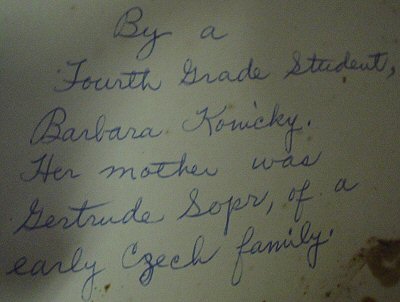 By a
Fourth Grade Student,
Barbara Konicky.
Her mother was
Gertrude Sopr, of a
early Czech family.